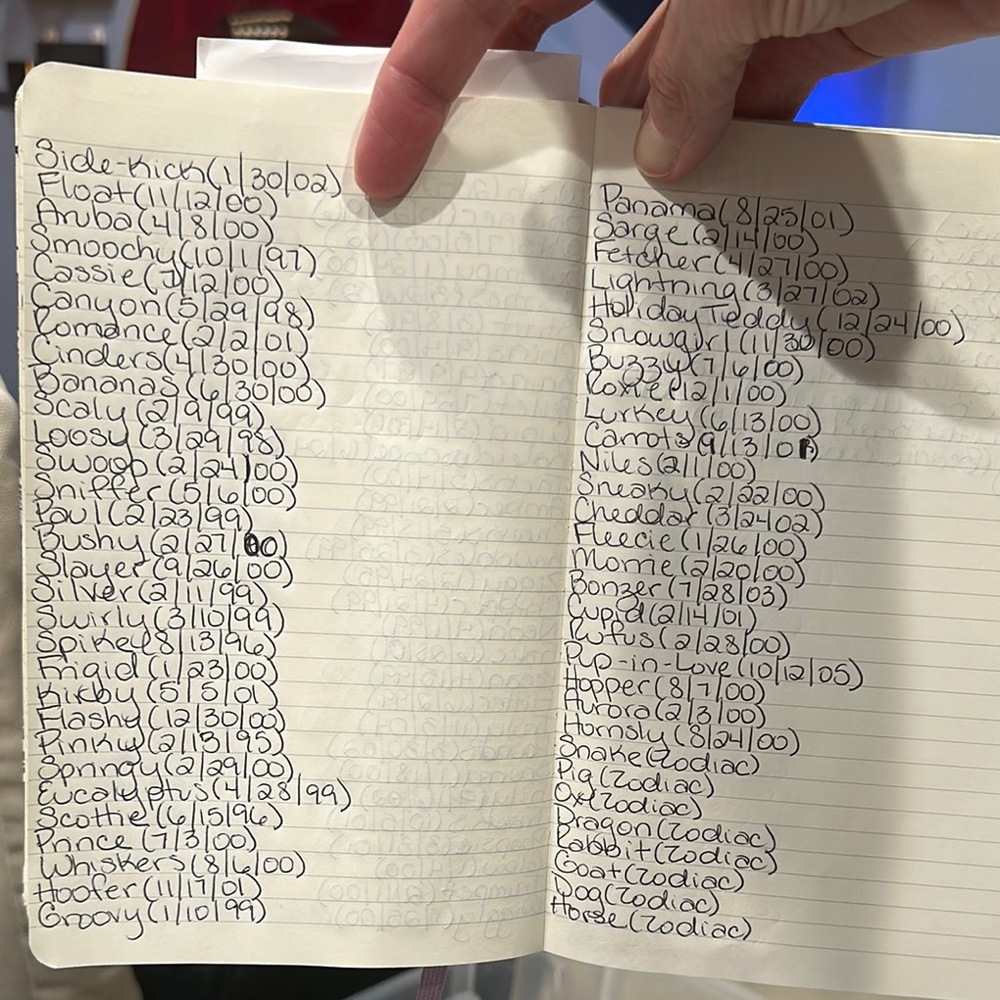 Side-Kick(1/30/02)
Float(11/12/00)
Aruba(4/8/00)
Smoochy(10/1/97)
Cassie(7/12/00)
Canyon(5/29/98)
Romance(2/2/01)
Cinders(4/30/00)
Bananas(6/30/00)
Scaly(2/9/99)
Loosy(3/29/98)
Swoop(2/24/00)
Sniffer(5/6/00)
Paul(2/23/99)
Bushy(2/27/00)
Slayer(9/26/00)
Silver(2/11/99)
Swirly(3/10/99)
Spike(8/13/96)
Frigid(1/23/00)
Kirby(5/5/01)
Flashy(12/30/00)
Pinky(2/13/95)
Springy(2/29/00)
Eucalyptus(4/28/99)
Scottie(6/15/96)
Prince(7/3/00)
Whiskers(8/6/00)
Hoofer(11/17/01)
Groovy(1/10/99)
Panama(8/25/01)
Sarge(2/14/00)
Fetcher(4/27/00)
Lightning(3/27/02)
Holiday Teddy(12/24/00)
Snowgirl(11/30/00)
Buzzy(7/6/00)
Roxie(12/1/00)
Lurkey(6/13/00)
Carrots
Niles(2/1/00)
Sneaky(2/22/00)
Cheddar(3/2402)
Fleecie(1/26/00)
Morrie(2/20/00)
Bonzer(7/28/03)
Cupid(2/14/01)
Rufus(2/28/00)
Pup-in-Love(10/12/05)
Hopper(8/7/00)
Aurora(2/3/00)
Hornsly(8/24/00)
Snake(Zodiac)
Pig(Zodiac)
Ox(Zodiac)
Dragon(Zodiac)
Rabbit(Zodiac)
Goat(Zodiac)
Dog(Zodiac)
Horse(Zodiac)